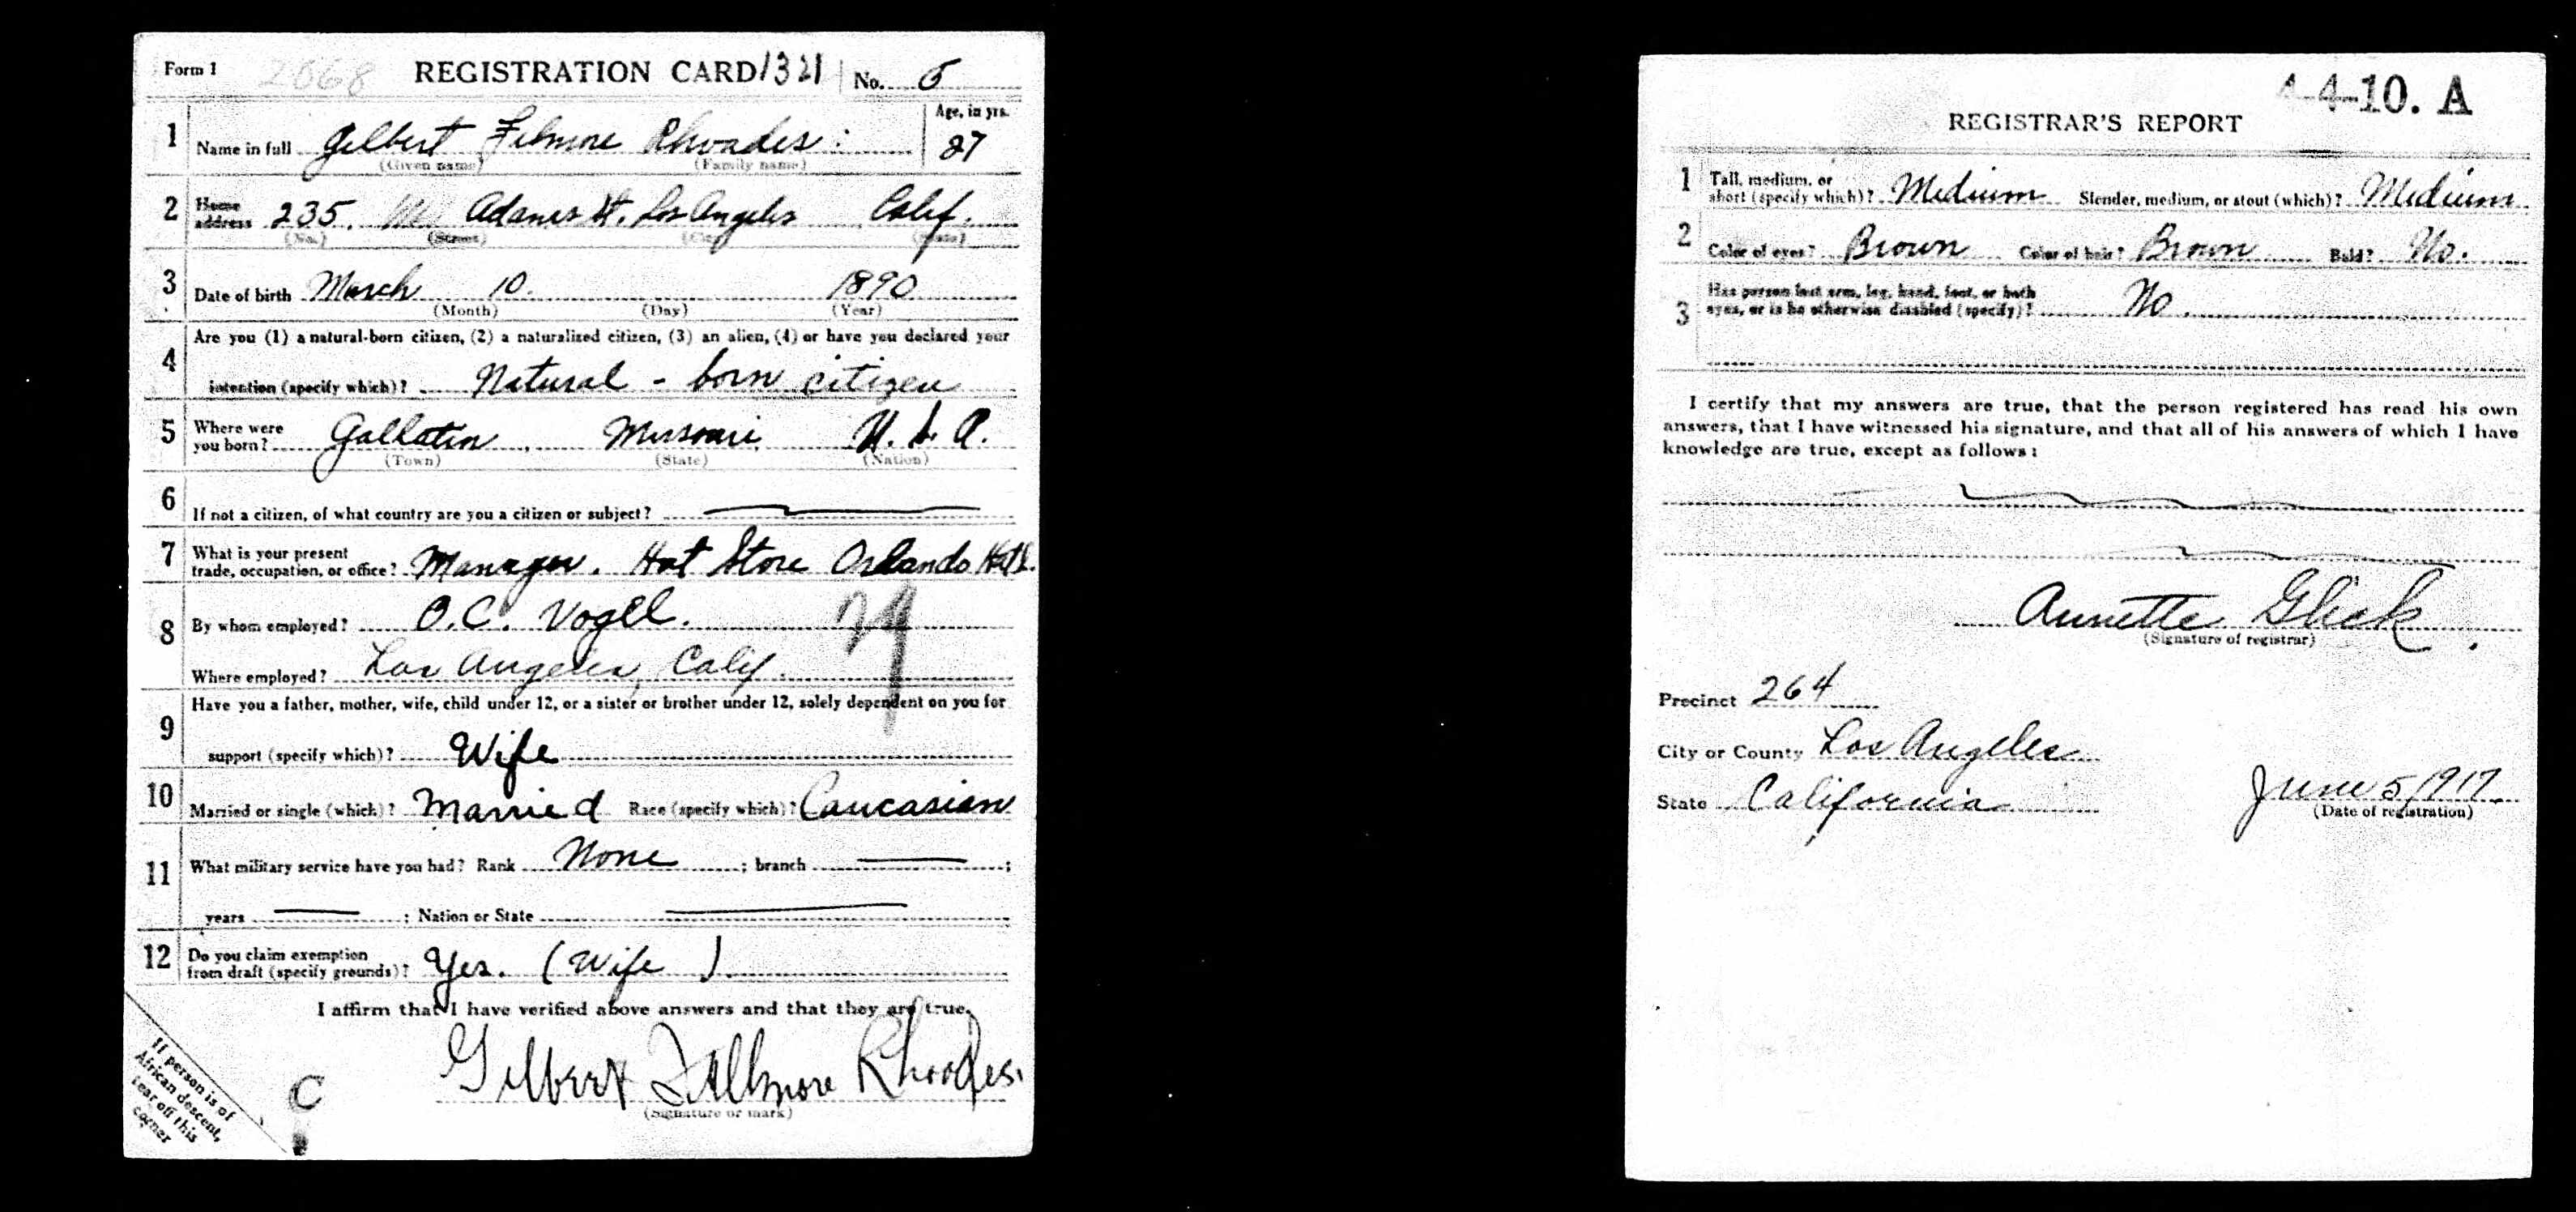 Form 1 2068 REGISTRATION CARD 1321 No. 5
1 Name in full Gilbert Filmore Rhoades Age, in yrs. 27
(Given name) (Family name)
2 Home address 235. W. Adams St. Los Angeles Calif.
(No.) (Street) (City) (State)
3 Date of birth March 10. 1890
(Month) (Day) (Year)
Are you (1) a natural-born citizen, (2) a naturalized citizen, (3) an alien, (4) or have you declared your
4 intention (specify which)? Natural - born citizen
5 Where were you born? Gallatin, Missouri, U. S. A.
(Town) (State) (Nation)
6 If not a citizen, of what country are you a citizen or subject?
7 What is your present trade, occupation, or office? Manager. Hat Store Orlando Hotl.
8 By whom employed? O.C. Vogel.
Where employed? Los Angeles, Calif.
Have you a father, mother, wife, child under 12, or a sister or brother under 12, solely dependent on you for
9 support (specify which)? Wife
10 Married or single (which)? Married Race (specify which)? Caucasian
11 What military service have you had? Rank None ; branch ;
years ; Nation or State
12 Do you claim exemption from draft (specify grounds)? Yes. (Wife).
I affirm that I have verified above answers and that they are true.
Gilbert Fillmore Rhoades.
(Signature or mark)
If person is of
African descent,
tear off this
corner
C
4-4-10. A
REGISTRAR'S REPORT
1 Tall, medium, or short (specify which)? Medium Slender, medium, or stout (which)? Medium
2 Color of eyes? Brown Color of hair? Brown Bald? No.
3 Has person lost arm, leg, hand, foot, or both eyes, or is he otherwise disabled (specify)? No.
I certify that my answers are true, that the person registered has read his own
answers, that I have witnessed his signature, and that all of his answers of which I have
knowledge are true, except as follows:
Annette Glick.
(Signature of registrar)
Precinct 264
City or County Los Angeles
State California June 5/917.
(Date of registration)